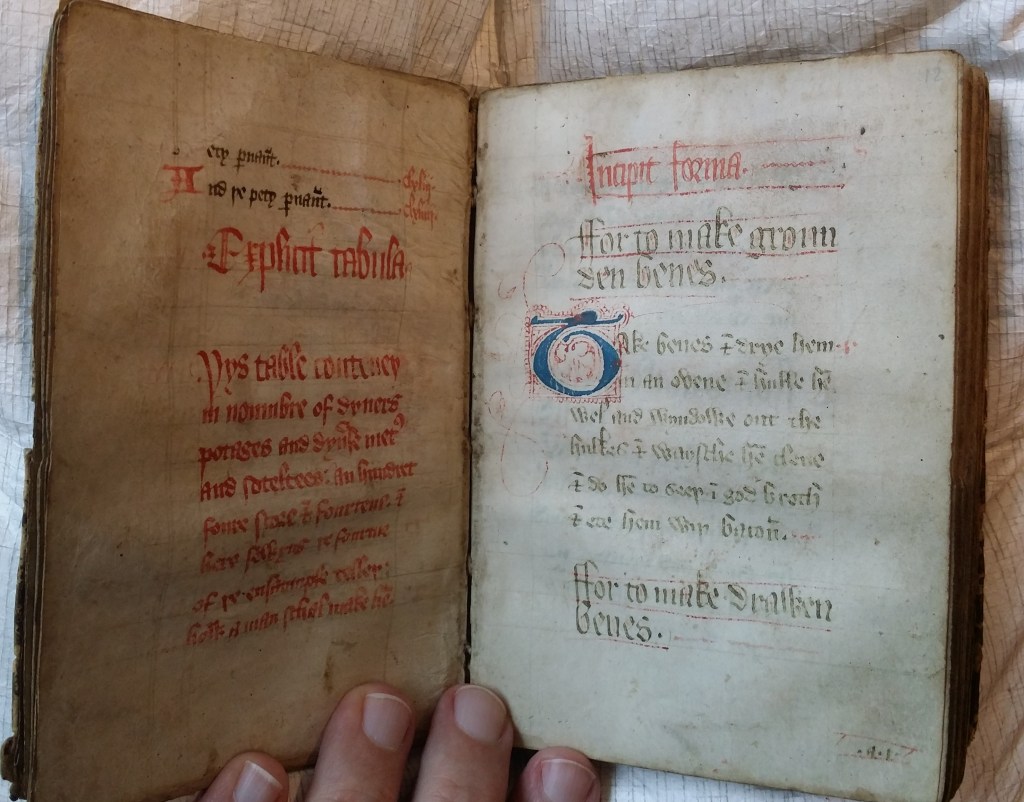 ety puaūt.
And þe pety puaūt.
Explicit tabula
Þys table conteney
in nonnbre of dyners
potages and dyūse metꝰ
and soteltees. an hundret
foure score & fourtene. &
here folewns þe fourme
of þe ensaumple
how a man schal make hē
12
Incipit forma.
Ffor to make groun
den benes.
Take benes & drye hem
in an ovene & hulke hē
wel and wyndowe out the
hulkes & waysche hē clene
& do hē to seeþ ī god broth
& ete hem wiþ bacoū.
Ffor to make drawen
benes.
.a.1.